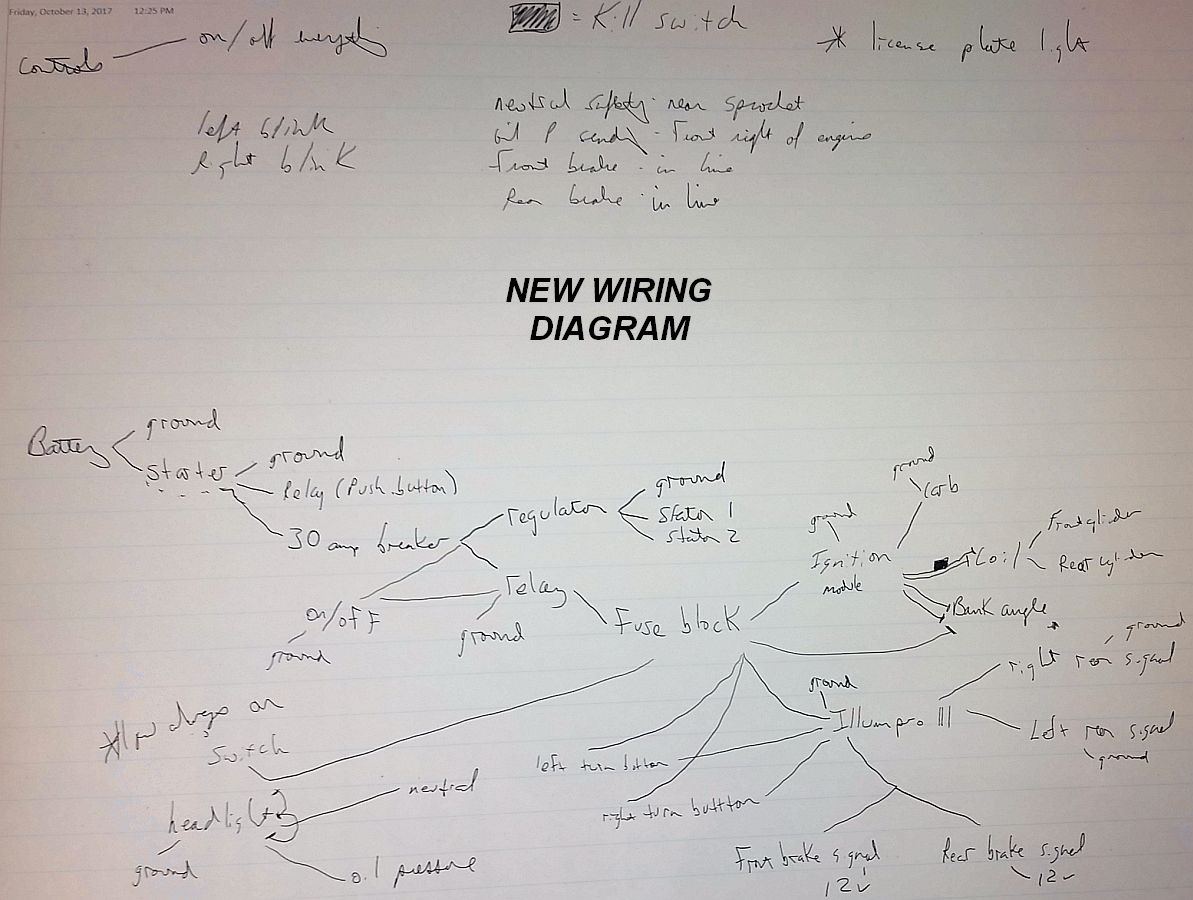 Friday, October 13, 2017 12:25 PM
= Kill switch
* license plate light
controls
on/off everything
left blink
Right blinK
neutral safety - rear sprocket
oil P sending - Front right of engine
Front brake - in line
Rear brake - in line
NEW WIRING
DIAGRAM
Battery
ground
Starter
ground
Relay (Push button)
30 amp breaker
regulator
ground
Stator 1
Stator 2
on/off
ground
relay
ground
Fuse block
Ignition
module
ground
Carb
ground
Coil
Front cylinder
Rear cylinder
Bank angle
right rear signal
ground
Illumpro III
ground
Left rear signal
ground
left turn button
right turn buttton
Front brake signal
12v
Rear brake signal
12v
always on
switch
headlight
ground
neutral
oil pressure